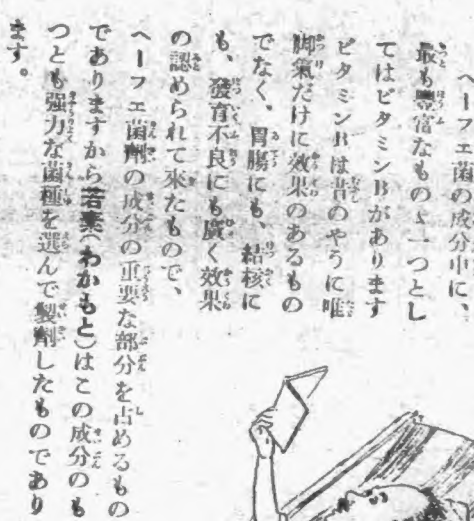 ヘーフエ菌の成分中に、
最も豊富なものゝ一つとし
てはビタミンBがあります
ビタミンBは昔のやうに唯
脚氣だけに效果のあるもの
でなく、胃膓にも、結核に
も、發育不良にも廣く效果
の認められて來たもので、
ヘーフエ菌劑の成分の重要な部分を占めるもの
でありますから若素(わかもと)はこの成分のも
つとも强力な菌種を選んで製劑したものであり
ます。